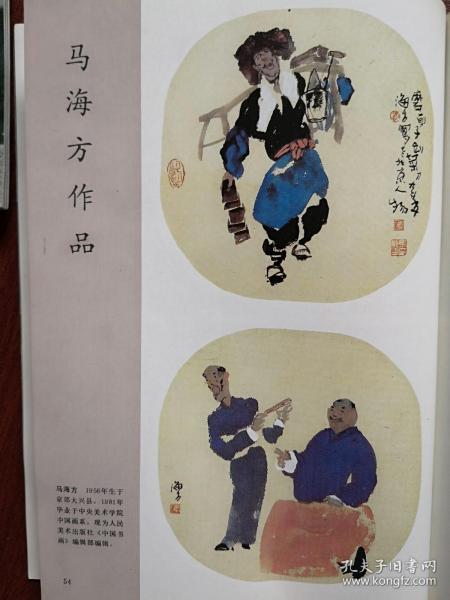 马海方作品
马海方 1956年生于
京郊大兴县。1981年
毕业于中央美术学院
中国画系。现为人民
美术出版社《中国书
画》编辑部编辑。
54
海方
孔夫子旧书网